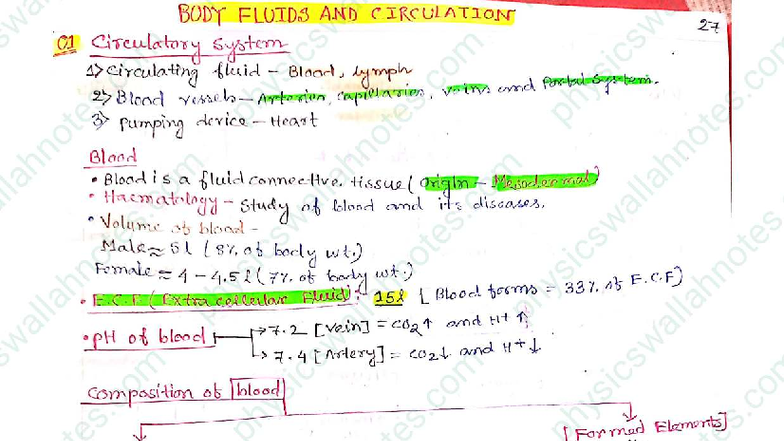 BODY FLUIDS AND CIRCULATION
27
01 Circulatory system
1) Circulating fluid - Blood, lymph
2) Blood vessels - Arteries, capillaries, veins and Portal System.
3) Pumping device - Heart
Blood
• Blood is a fluid connective tissue (Origin - Mesodermal)
• Haematology - Study of blood and its diseases.
• Volume of blood -
Male ≈ 5l (8% of body wt.)
Female ≈ 4 - 4.5l (7% of body wt.)
• E.C.F (Extra cellular Fluid): 15l [Blood forms = 33% of E.C.F)
• pH of blood → 7.2 [Vein] = CO2↑ and H+ ↑
→ 7.4 [Artery] = CO2↓ and H+ ↓
Composition of blood
[Formed Elements]
physicswallahnotes.com